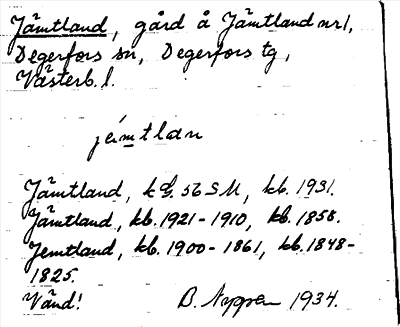 Jämtland, gård å Jämtland nr 1,
Degerfors sn, Degerfors tg,
Västerb. l.
jämtlan
Jämtland, k bl. 56 SM, kb. 1931.
Jämtland, kb. 1921-1910, kb. 1858.
Jemtland, kb. 1900-1861, kb. 1848-
1825.
Vänd! B. Nygren 1934.